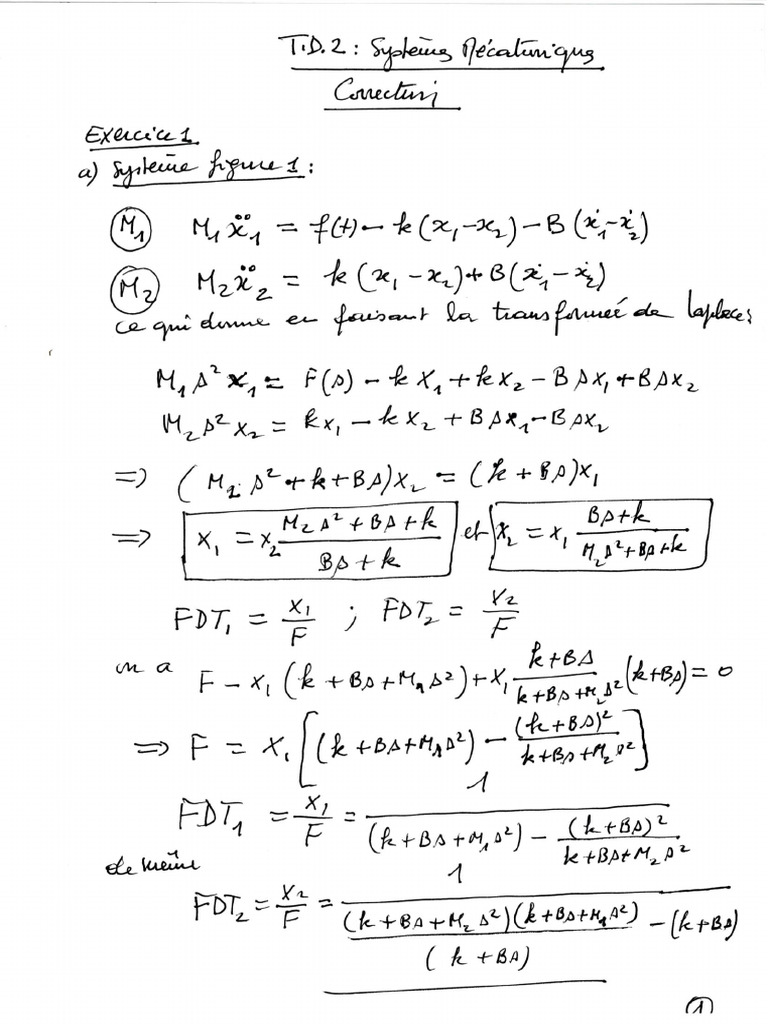 T.D.2 : Systèmes Mécatroniques
Correction
Exercice 1
a) Système figure 1 :
(M₁) M₁ẍ₁ = f(t) - k(x₁-x₂) - B(ẋ₁-ẋ₂)
(M₂) M₂ẍ₂ = k(x₁-x₂) + B(ẋ₁-ẋ₂)
ce qui donne en faisant la transformée de Laplace :
M₁s²X₁ = F(s) - kX₁ + kX₂ - BsX₁ + BsX₂
M₂s²X₂ = kX₁ - kX₂ + BsX₁ - BsX₂
=> (M₂s² + k + Bs)X₂ = (k + Bs)X₁
=> X₁ = X₂ (M₂s² + Bs + k)/(Bs + k) et X₂ = X₁ (Bs + k)/(M₂s² + Bs + k)
FDT₁ = X₁/F ; FDT₂ = X₂/F
on a F - X₁(k + Bs + M₁s²) + X₁ (k + Bs)/(k + Bs + M₂s²) (k + Bs) = 0
=> F = X₁[(k + Bs + M₁s²) - (k + Bs)²/(k + Bs + M₂s²)]
FDT₁ = X₁/F = 1/((k + Bs + M₁s²) - (k + Bs)²/(k + Bs + M₂s²))
de même
FDT₂ = X₂/F = 1/((k + Bs + M₂s²)(k + Bs + M₁s²)/(k + Bs) - (k + Bs))
(1)